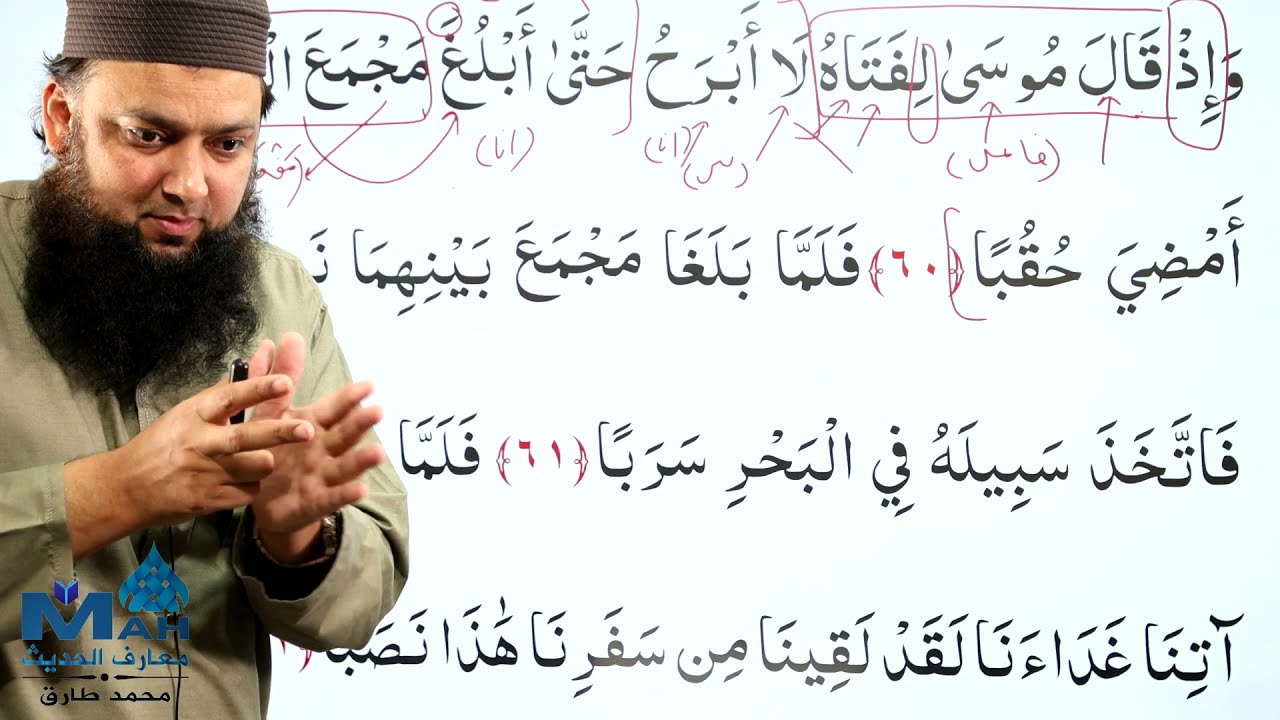 وَإِذْ قَالَ مُوسَىٰ لِفَتَاهُ لَا أَبْرَحُ حَتَّىٰ أَبْلُغَ مَجْمَعَ
(فاعل) (انا) (انا)
أَمْضِيَ حُقُبًا ﴿٦٠﴾ فَلَمَّا بَلَغَا مَجْمَعَ بَيْنِهِمَا
فَاتَّخَذَ سَبِيلَهُ فِي الْبَحْرِ سَرَبًا ﴿٦١﴾ فَلَمَّا
آتِنَا غَدَاءَنَا لَقَدْ لَقِينَا مِن سَفَرِنَا هَٰذَا نَصَبًا
MAH
معارف الحديث
محمد طارق